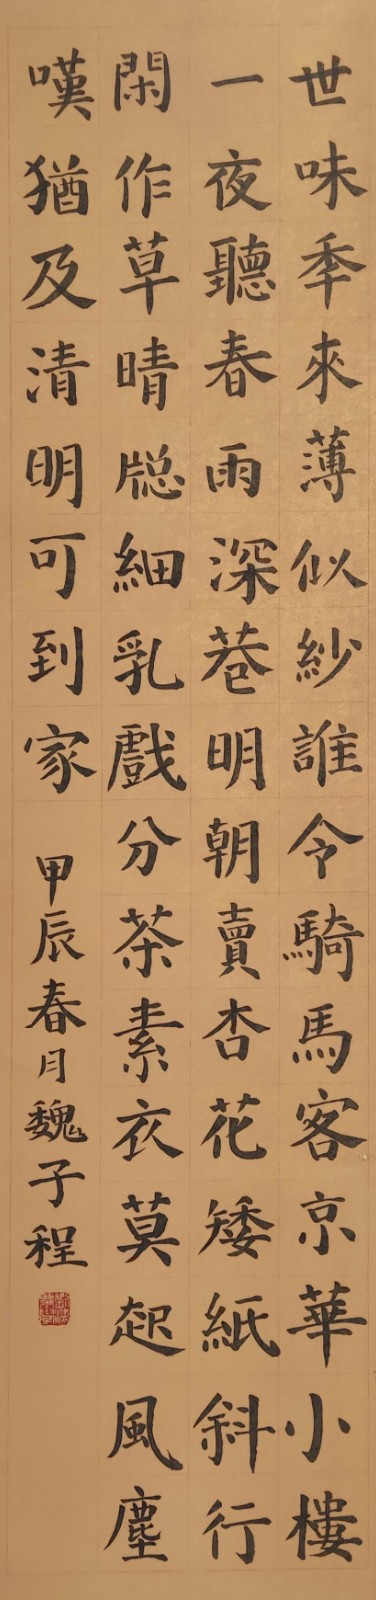 世味秊來薄似紗誰令騎馬客京華小樓
一夜聽春雨深巷明朝賣杏花矮紙斜行
閑作草晴牕細乳戲分茶素衣莫起風塵
嘆猶及清明可到家
甲辰春月魏子程